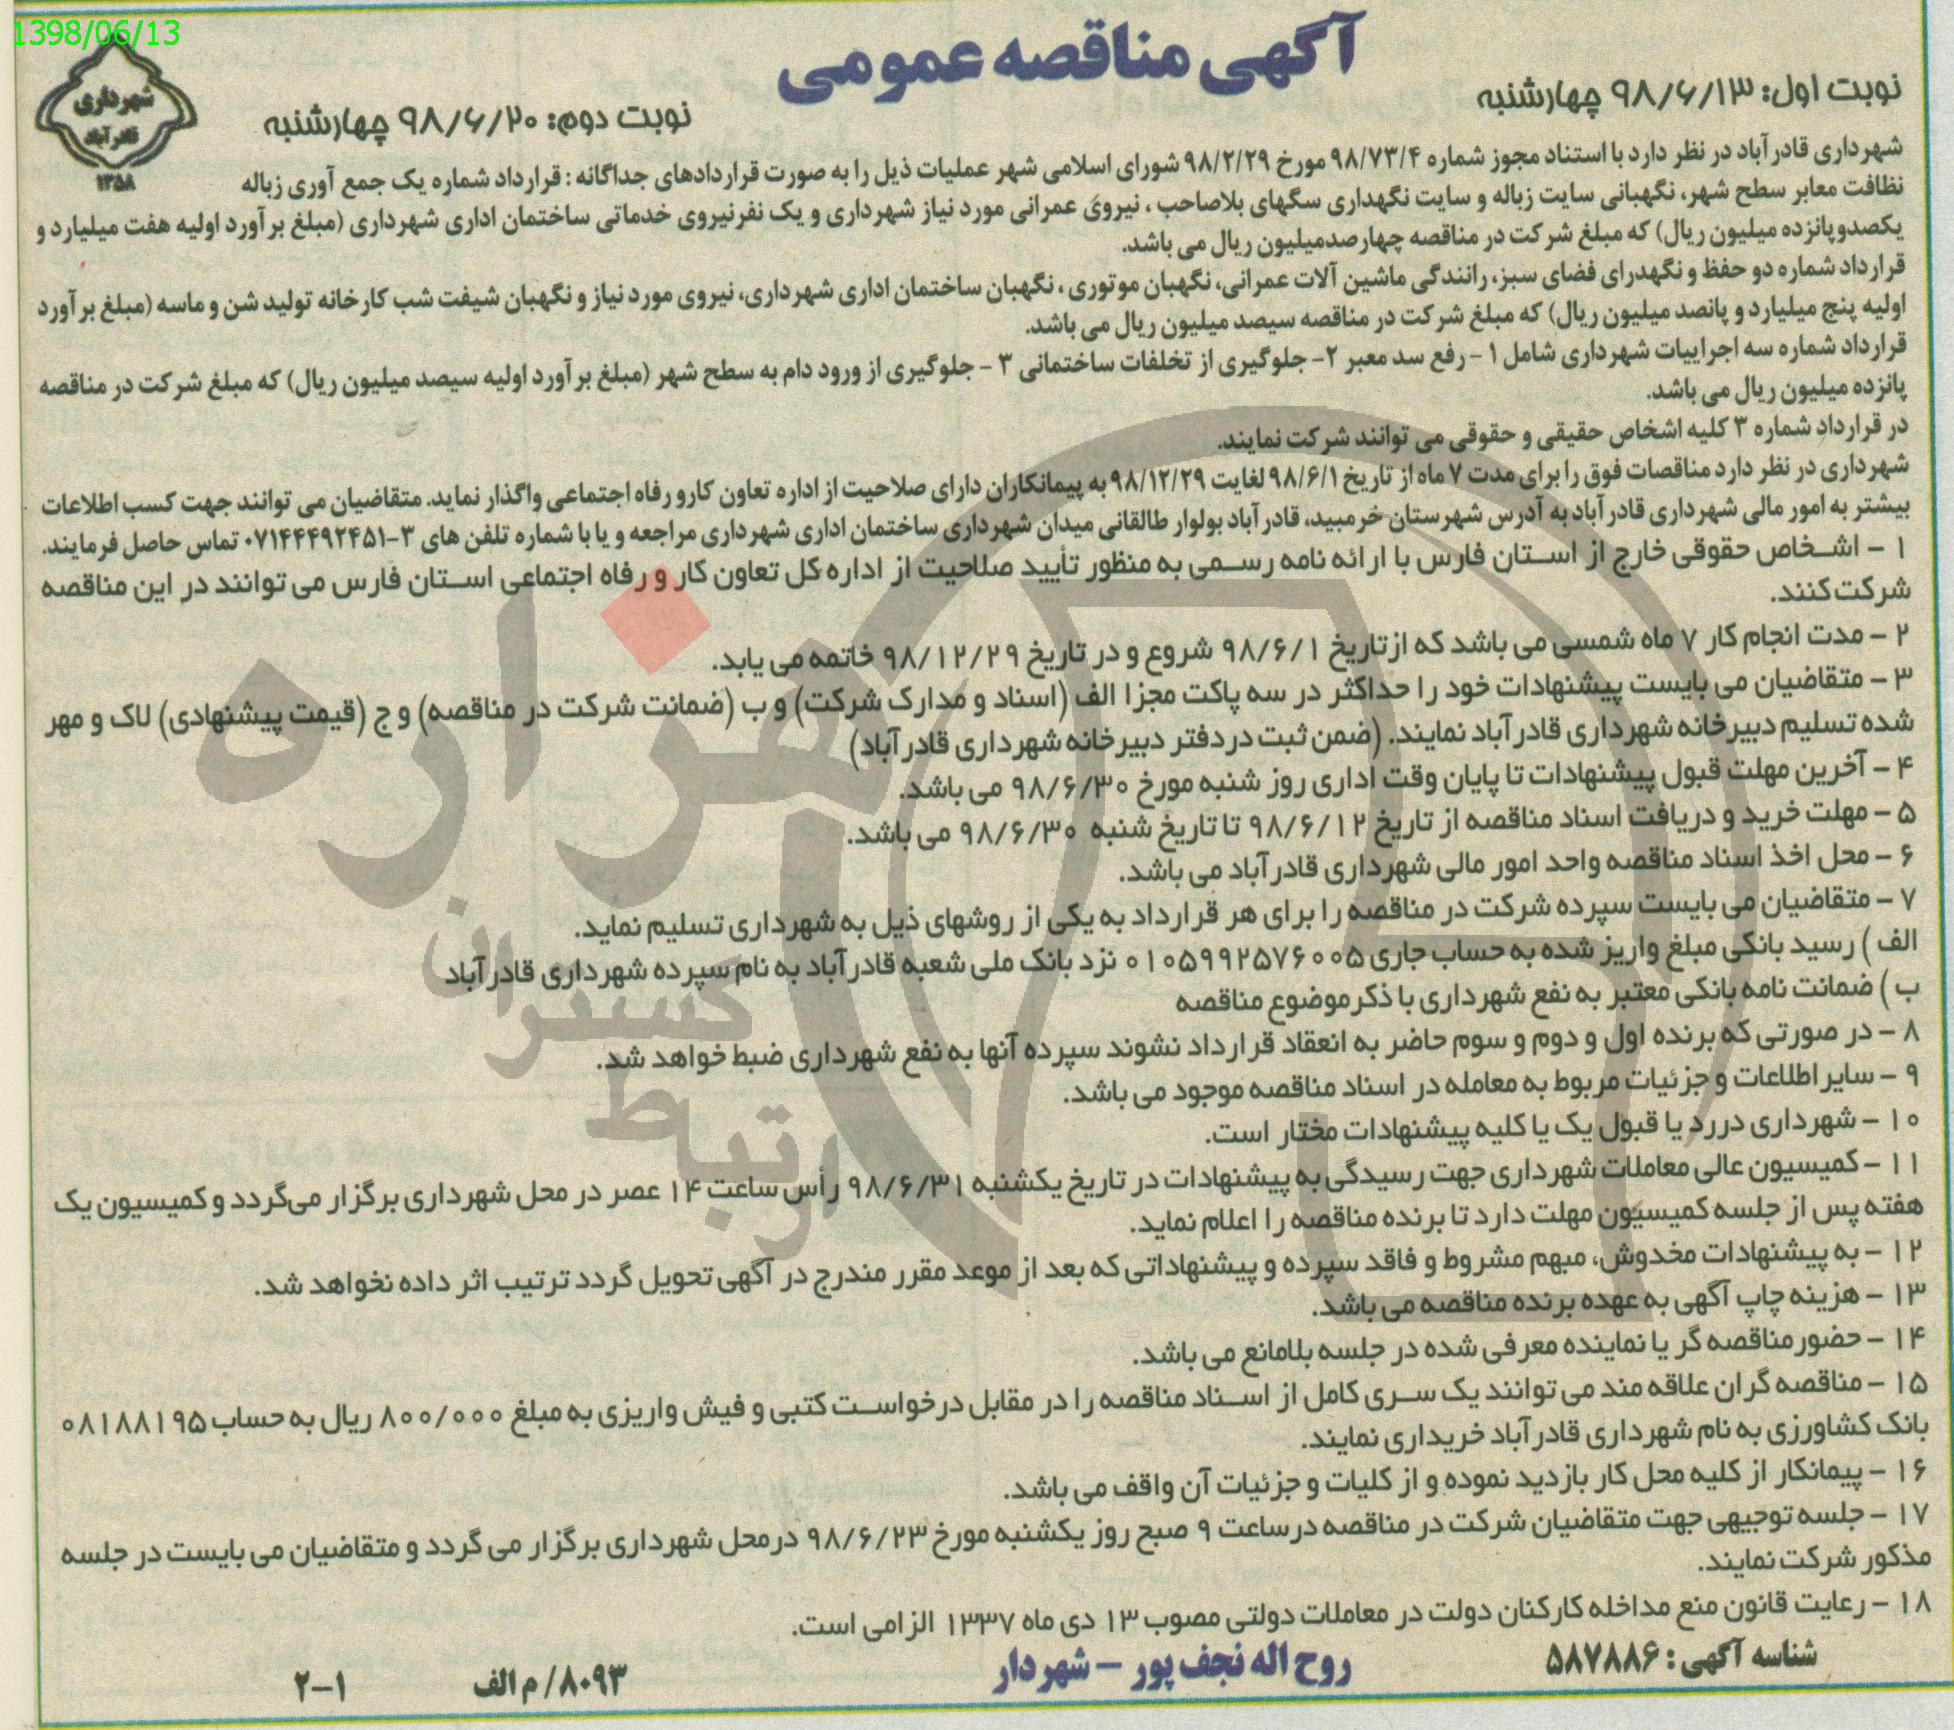 1398/06/13
آگهی مناقصه عمومی
نوبت اول: ۹۸/۶/۱۳ چهارشنبه
نوبت دوم: ۹۸/۶/۲۰ چهارشنبه
شهرداری
قادرآباد
۱۳۵۸
شهرداری قادرآباد در نظر دارد با استناد مجوز شماره ۹۸/۷۳/۴ مورخ ۹۸/۲/۲۹ شورای اسلامی شهر عملیات ذیل را به صورت قراردادهای جداگانه : قرارداد شماره یک جمع آوری زباله
نظافت معابر سطح شهر، نگهبانی سایت زباله و سایت نگهداری سگهای بلاصاحب ، نیروی عمرانی مورد نیاز شهرداری و یک نفرنیروی خدماتی ساختمان اداری شهرداری (مبلغ برآورد اولیه هفت میلیارد و
یکصدوپانزده میلیون ریال) که مبلغ شرکت در مناقصه چهارصدمیلیون ریال می باشد.
قرارداد شماره دو حفظ و نگهدرای فضای سبز، رانندگی ماشین آلات عمرانی، نگهبان موتوری ، نگهبان ساختمان اداری شهرداری، نیروی مورد نیاز و نگهبان شیفت شب کارخانه تولید شن و ماسه (مبلغ برآورد
اولیه پنج میلیارد و پانصد میلیون ریال) که مبلغ شرکت در مناقصه سیصد میلیون ریال می باشد.
قرارداد شماره سه اجراییات شهرداری شامل ۱ - رفع سد معبر ۲- جلوگیری از تخلفات ساختمانی ۳ - جلوگیری از ورود دام به سطح شهر (مبلغ برآورد اولیه سیصد میلیون ریال) که مبلغ شرکت در مناقصه
پانزده میلیون ریال می باشد.
در قرارداد شماره ۳ کلیه اشخاص حقیقی و حقوقی می توانند شرکت نمایند.
شهرداری در نظر دارد مناقصات فوق را برای مدت ۷ ماه از تاریخ ۹۸/۶/۱ لغایت ۹۸/۱۲/۲۹ به پیمانکاران دارای صلاحیت از اداره تعاون کارو رفاه اجتماعی واگذار نماید. متقاضیان می توانند جهت کسب اطلاعات
بیشتر به امور مالی شهرداری قادرآباد به آدرس شهرستان خرمبید، قادرآباد بولوار طالقانی میدان شهرداری ساختمان اداری شهرداری مراجعه و یا با شماره تلفن های ۳-۰۷۱۴۴۴۹۲۴۵۱ تماس حاصل فرمایند.
۱ - اشخاص حقوقی خارج از استان فارس با ارائه نامه رسمی به منظور تأیید صلاحیت از اداره کل تعاون کار و رفاه اجتماعی استان فارس می توانند در این مناقصه
شرکت کنند.
۲ - مدت انجام کار ۷ ماه شمسی می باشد که ازتاریخ ۹۸/۶/۱ شروع و در تاریخ ۹۸/۱۲/۲۹ خاتمه می یابد.
۳ - متقاضیان می بایست پیشنهادات خود را حداکثر در سه پاکت مجزا الف (اسناد و مدارک شرکت) و ب (ضمانت شرکت در مناقصه) و ج (قیمت پیشنهادی) لاک و مهر
شده تسلیم دبیرخانه شهرداری قادرآباد نمایند. (ضمن ثبت دردفتر دبیرخانه شهرداری قادرآباد)
۴ - آخرین مهلت قبول پیشنهادات تا پایان وقت اداری روز شنبه مورخ ۹۸/۶/۳۰ می باشد.
۵ - مهلت خرید و دریافت اسناد مناقصه از تاریخ ۹۸/۶/۱۲ تا تاریخ شنبه ۹۸/۶/۳۰ می باشد.
۶ - محل اخذ اسناد مناقصه واحد امور مالی شهرداری قادرآباد می باشد.
۷ - متقاضیان می بایست سپرده شرکت در مناقصه را برای هر قرارداد به یکی از روشهای ذیل به شهرداری تسلیم نماید.
الف ) رسید بانکی مبلغ واریز شده به حساب جاری ۰۱۰۵۹۹۲۵۷۶۰۰۵ نزد بانک ملی شعبه قادرآباد به نام سپرده شهرداری قادرآباد
ب ) ضمانت نامه بانکی معتبر به نفع شهرداری با ذکرموضوع مناقصه
۸ - در صورتی که برنده اول و دوم و سوم حاضر به انعقاد قرارداد نشوند سپرده آنها به نفع شهرداری ضبط خواهد شد.
۹ - سایر اطلاعات و جزئیات مربوط به معامله در اسناد مناقصه موجود می باشد.
۱۰ - شهرداری دررد یا قبول یک یا کلیه پیشنهادات مختار است.
۱۱ - کمیسیون عالی معاملات شهرداری جهت رسیدگی به پیشنهادات در تاریخ یکشنبه ۹۸/۶/۳۱ رأس ساعت ۱۴ عصر در محل شهرداری برگزار می‌گردد و کمیسیون یک
هفته پس از جلسه کمیسیون مهلت دارد تا برنده مناقصه را اعلام نماید.
۱۲ - به پیشنهادات مخدوش، مبهم مشروط و فاقد سپرده و پیشنهاداتی که بعد از موعد مقرر مندرج در آگهی تحویل گردد ترتیب اثر داده نخواهد شد.
۱۳ - هزینه چاپ آگهی به عهده برنده مناقصه می باشد.
۱۴ - حضورمناقصه گر یا نماینده معرفی شده در جلسه بلامانع می باشد.
۱۵ - مناقصه گران علاقه مند می توانند یک سری کامل از اسناد مناقصه را در مقابل درخواست کتبی و فیش واریزی به مبلغ ۸۰۰/۰۰۰ ریال به حساب ۰۸۱۸۸۱۹۵
بانک کشاورزی به نام شهرداری قادرآباد خریداری نمایند.
۱۶ - پیمانکار از کلیه محل کار بازدید نموده و از کلیات و جزئیات آن واقف می باشد.
۱۷ - جلسه توجیهی جهت متقاضیان شرکت در مناقصه درساعت ۹ صبح روز یکشنبه مورخ ۹۸/۶/۲۳ درمحل شهرداری برگزار می گردد و متقاضیان می بایست در جلسه
مذکور شرکت نمایند.
۱۸ - رعایت قانون منع مداخله کارکنان دولت در معاملات دولتی مصوب ۱۳ دی ماه ۱۳۳۷ الزامی است.
شناسه آگهی : ۵۸۷۸۸۶
روح اله نجف پور - شهردار
۸۰۹۳/ م الف
۲-۱
هزاره
گستران
ارتباط